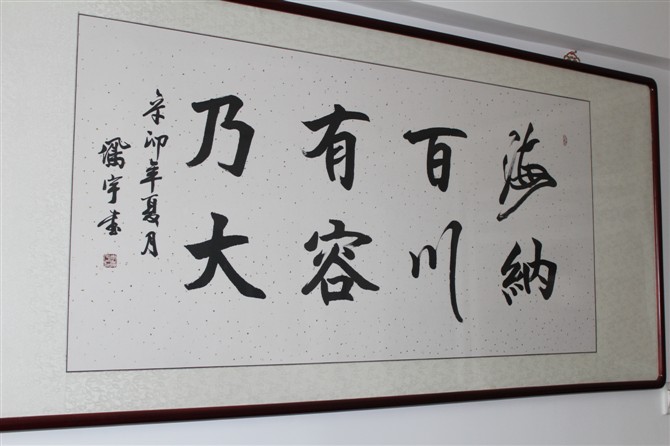 海納
百川
有容
乃大
辛卯年夏月
宇書